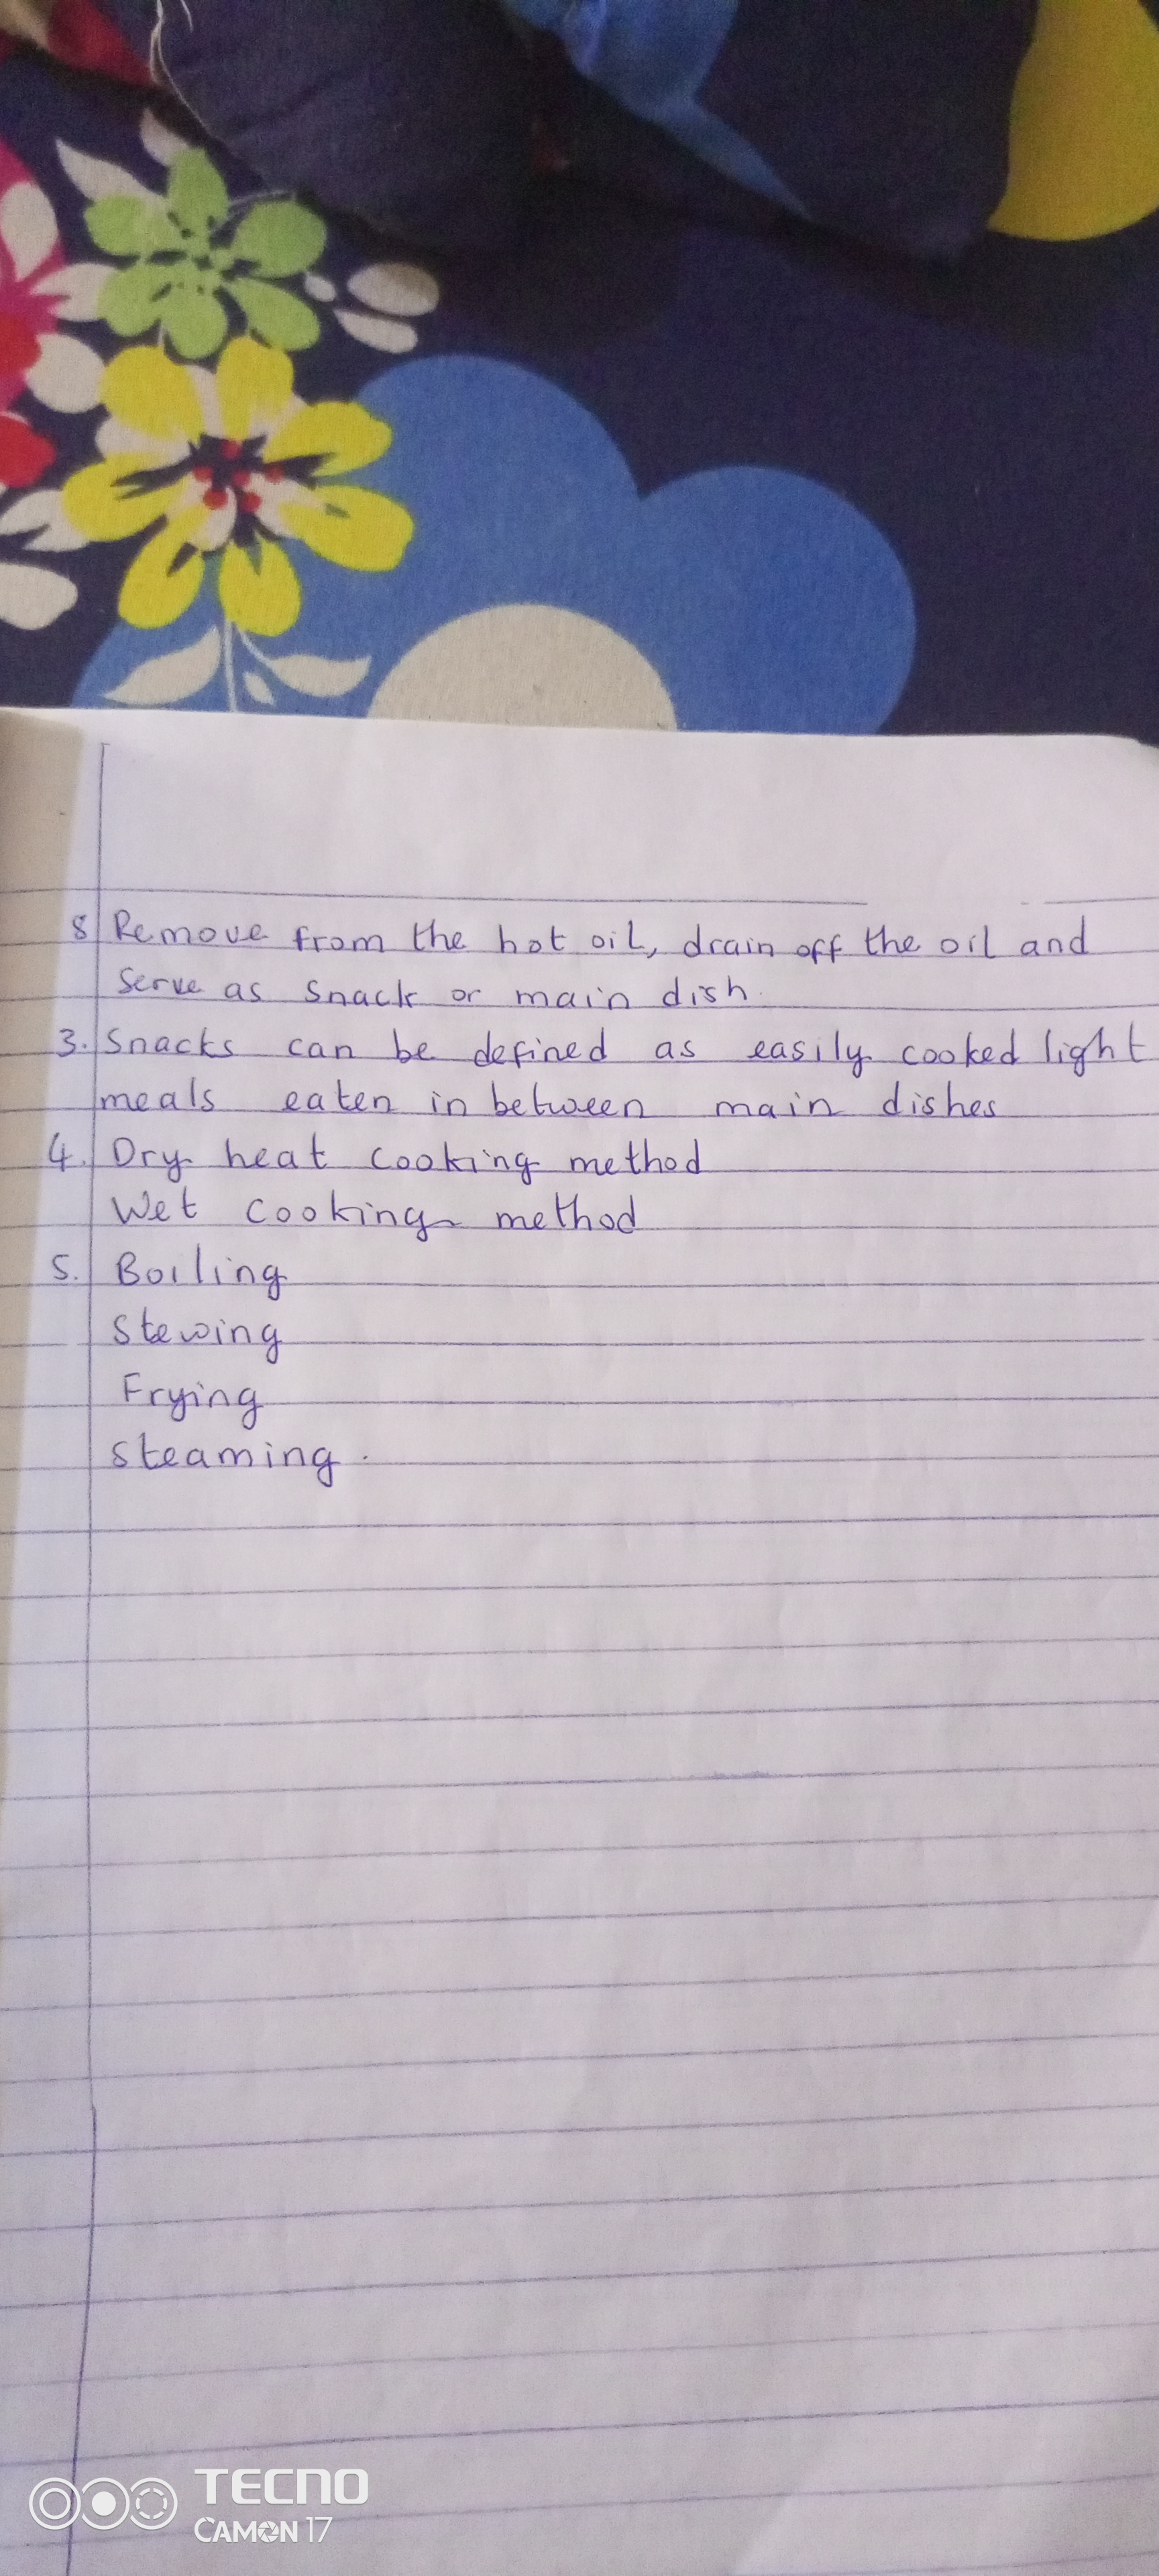 8 Remove from the hot oil, drain off the oil and
serve as snack or main dish.
3. Snacks can be defined as easily cooked light
meals eaten in between main dishes
4. Dry heat cooking method
Wet cooking method
5. Boiling
Stewing
Frying
steaming.
TECNO
CAMON 17